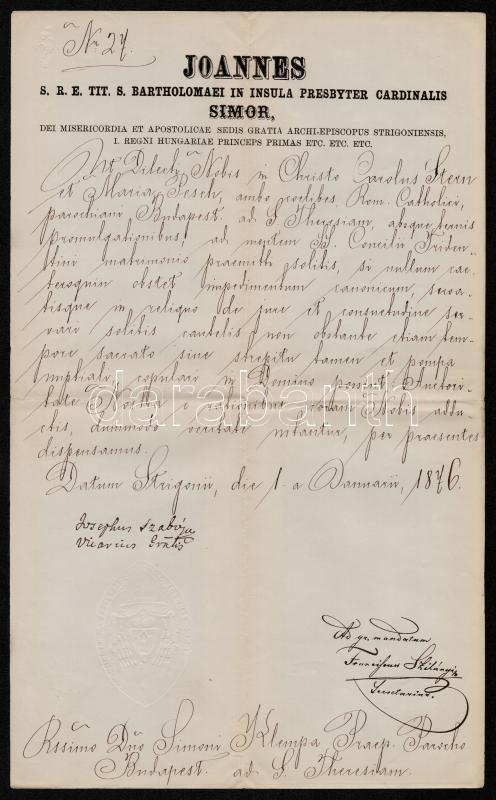 Nr 27.
JOANNES
S. R. E. TIT. S. BARTHOLOMAEI IN INSULA PRESBYTER CARDINALIS
SIMOR,
DEI MISERICORDIA ET APOSTOLICAE SEDIS GRATIA ARCHI-EPISCOPUS STRIGONIENSIS,
I. REGNI HUNGARIAE PRINCEPS PRIMAS ETC. ETC. ETC.
Ut Dilecti Nobis in Christo Carolus Stern
et Maria Pesch, ambo coelibes, Rom. Catholici,
parochiani Budapest. ad S. Theresiam, absque ternis
promulgationibus, ad mentem SS. Concilii Triden-
tini matrimonio praemitti solitis, si nullum cae-
teroquin obstet impedimentum canonicum, serva-
tisque in reliquo de jure et consuetudine ser-
vari solitis cautelis, non obstante etiam tem-
pore sacrato sine strepitu tamen et pompa
nuptiali copulari in Domino possint, Auctori-
tate Nostra e rationibus coram Nobis addu-
ctis, dummodo veritate nitantur, per praesentes
dispensamus.
Datum Strigonii, die 1-a Januarii, 1876.
Josephus Szabó
Vicarius Grālis
Ad gr. mandatum
Franciscus
Secretarius.
Rssimo Dno Simoni Klempa Praep. Parocho
Budapest. ad S. Theresiam.
darabanth